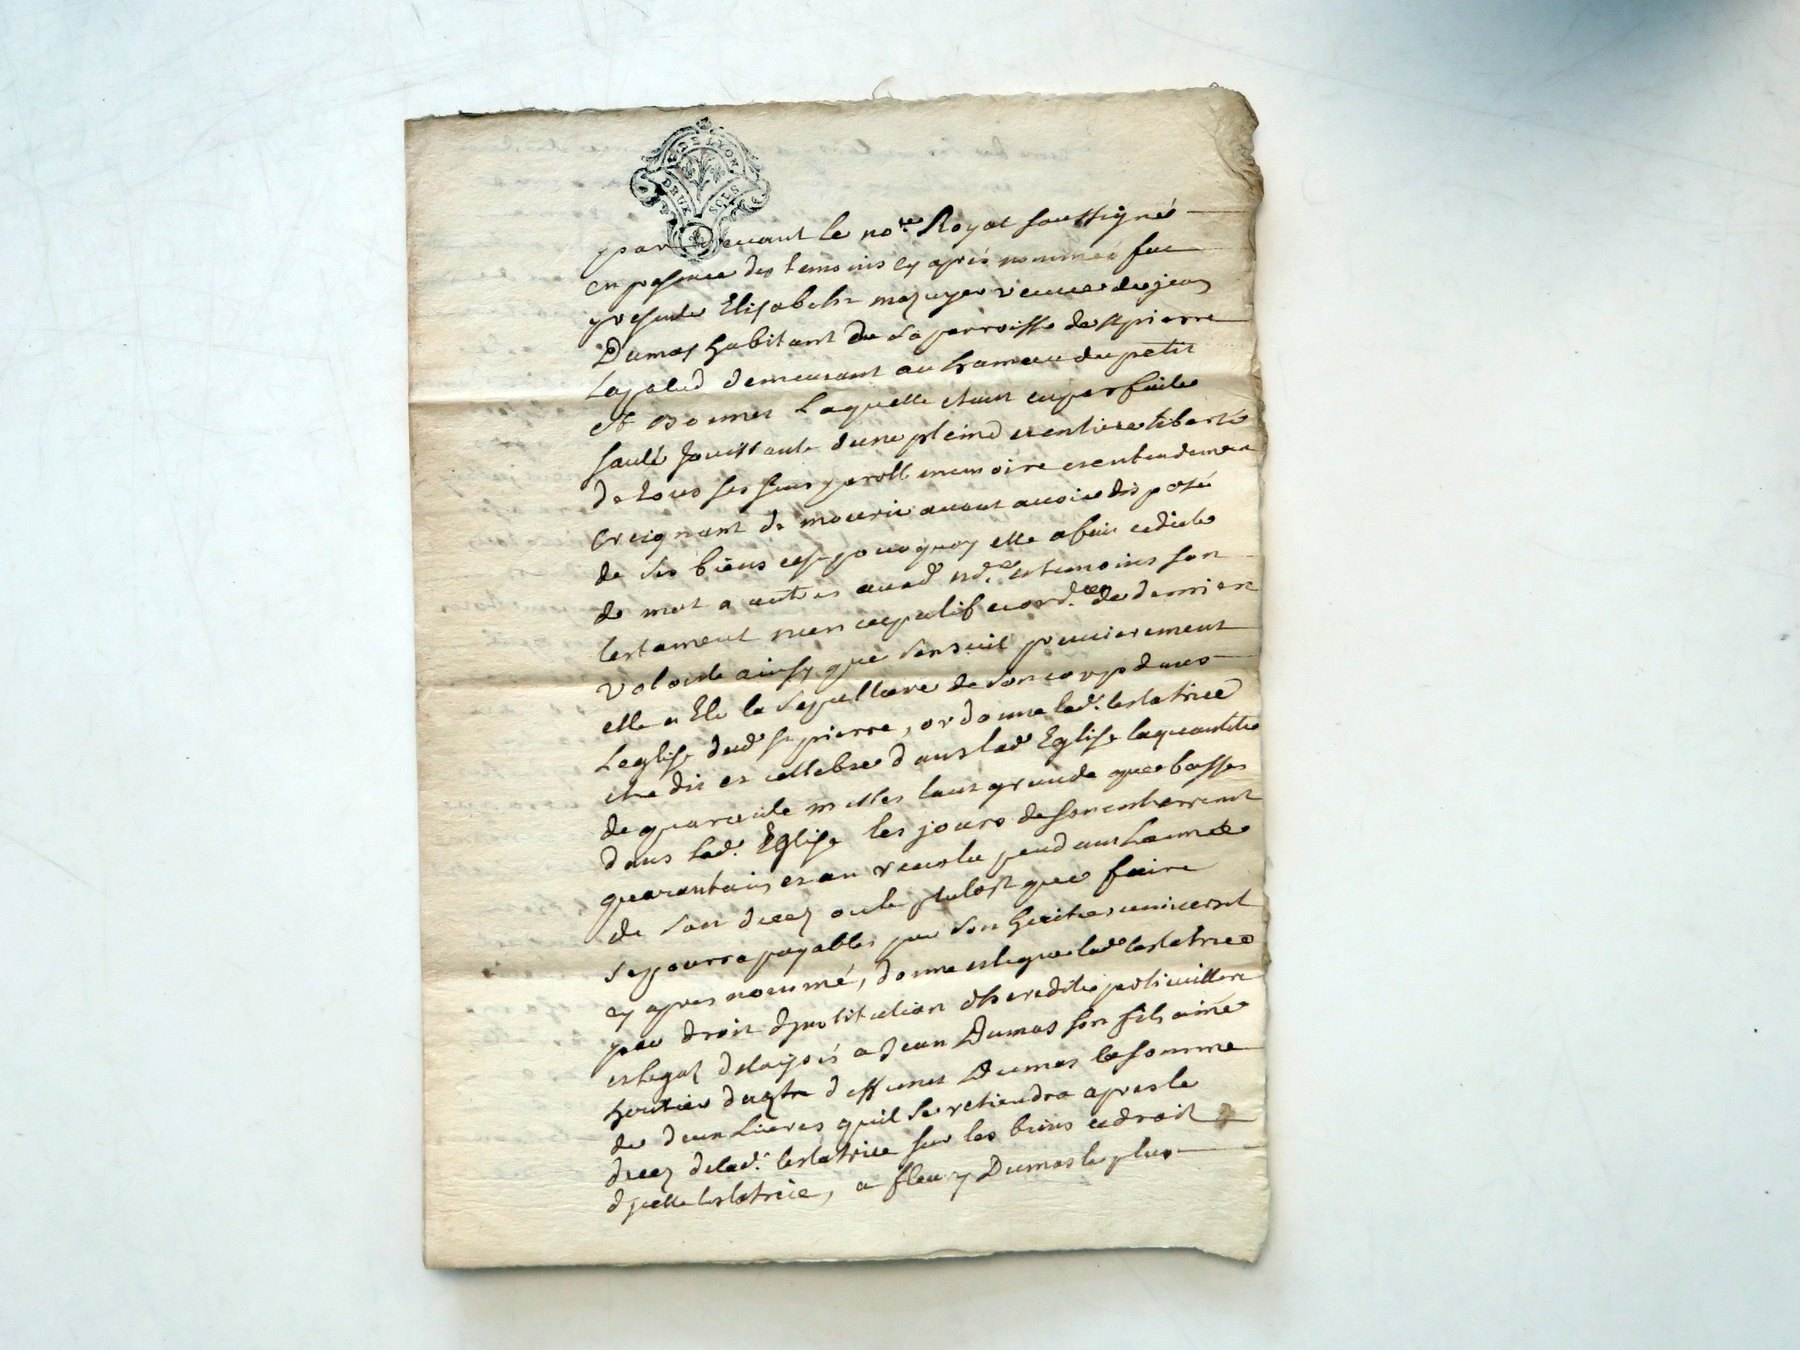 G. DE LYON
DEUX SOLS
par devant le no.re Royal soussigné
en presence des temoins cy aprés nommés fut
presente Elisabeth mazuyer veuve de jean
Dumas habitant de la parroisse de st pierre
Lapalud demeurant au hameau du petit
laquelle etant en parfaite
santé Jouissante d'une pleine et entiere liberté
de tous ses sens parolle memoire et entendement
creignant de mourir avant avoir disposé
de ses biens cest pourquoy elle a fait et dicté
de mot a autres aud.t nd.re et temoins son
testament nuncupatif et ord.ce de derniere
volonté ainsy que sensuit premierement
elle a Elu la sepulture de son corp dans
Leglise dud. st pierre, ordonne lad.e testatrice
etre dit et cellebré dans lad.e Eglise la quantité
de quarante messes tant grande que basses
dans lad.e Eglise les jours de son enterrement
quarantain et an revolu pendant Lannée
de son decez ou le plutost que faire
se pourra payables par son heritier universel
cy apres nommé, donne et legue lad.e testatrice
par droit dinstitution dheredité particuliere
et legat delaissés a Jean Dumas son fils ainé
heritier deffunt Dumas la somme
de deux Livres quil se retiendra apres le
decez de lad.e testatrice sur les biens et droit
dycelle testatrice, a fleury Dumas le plus